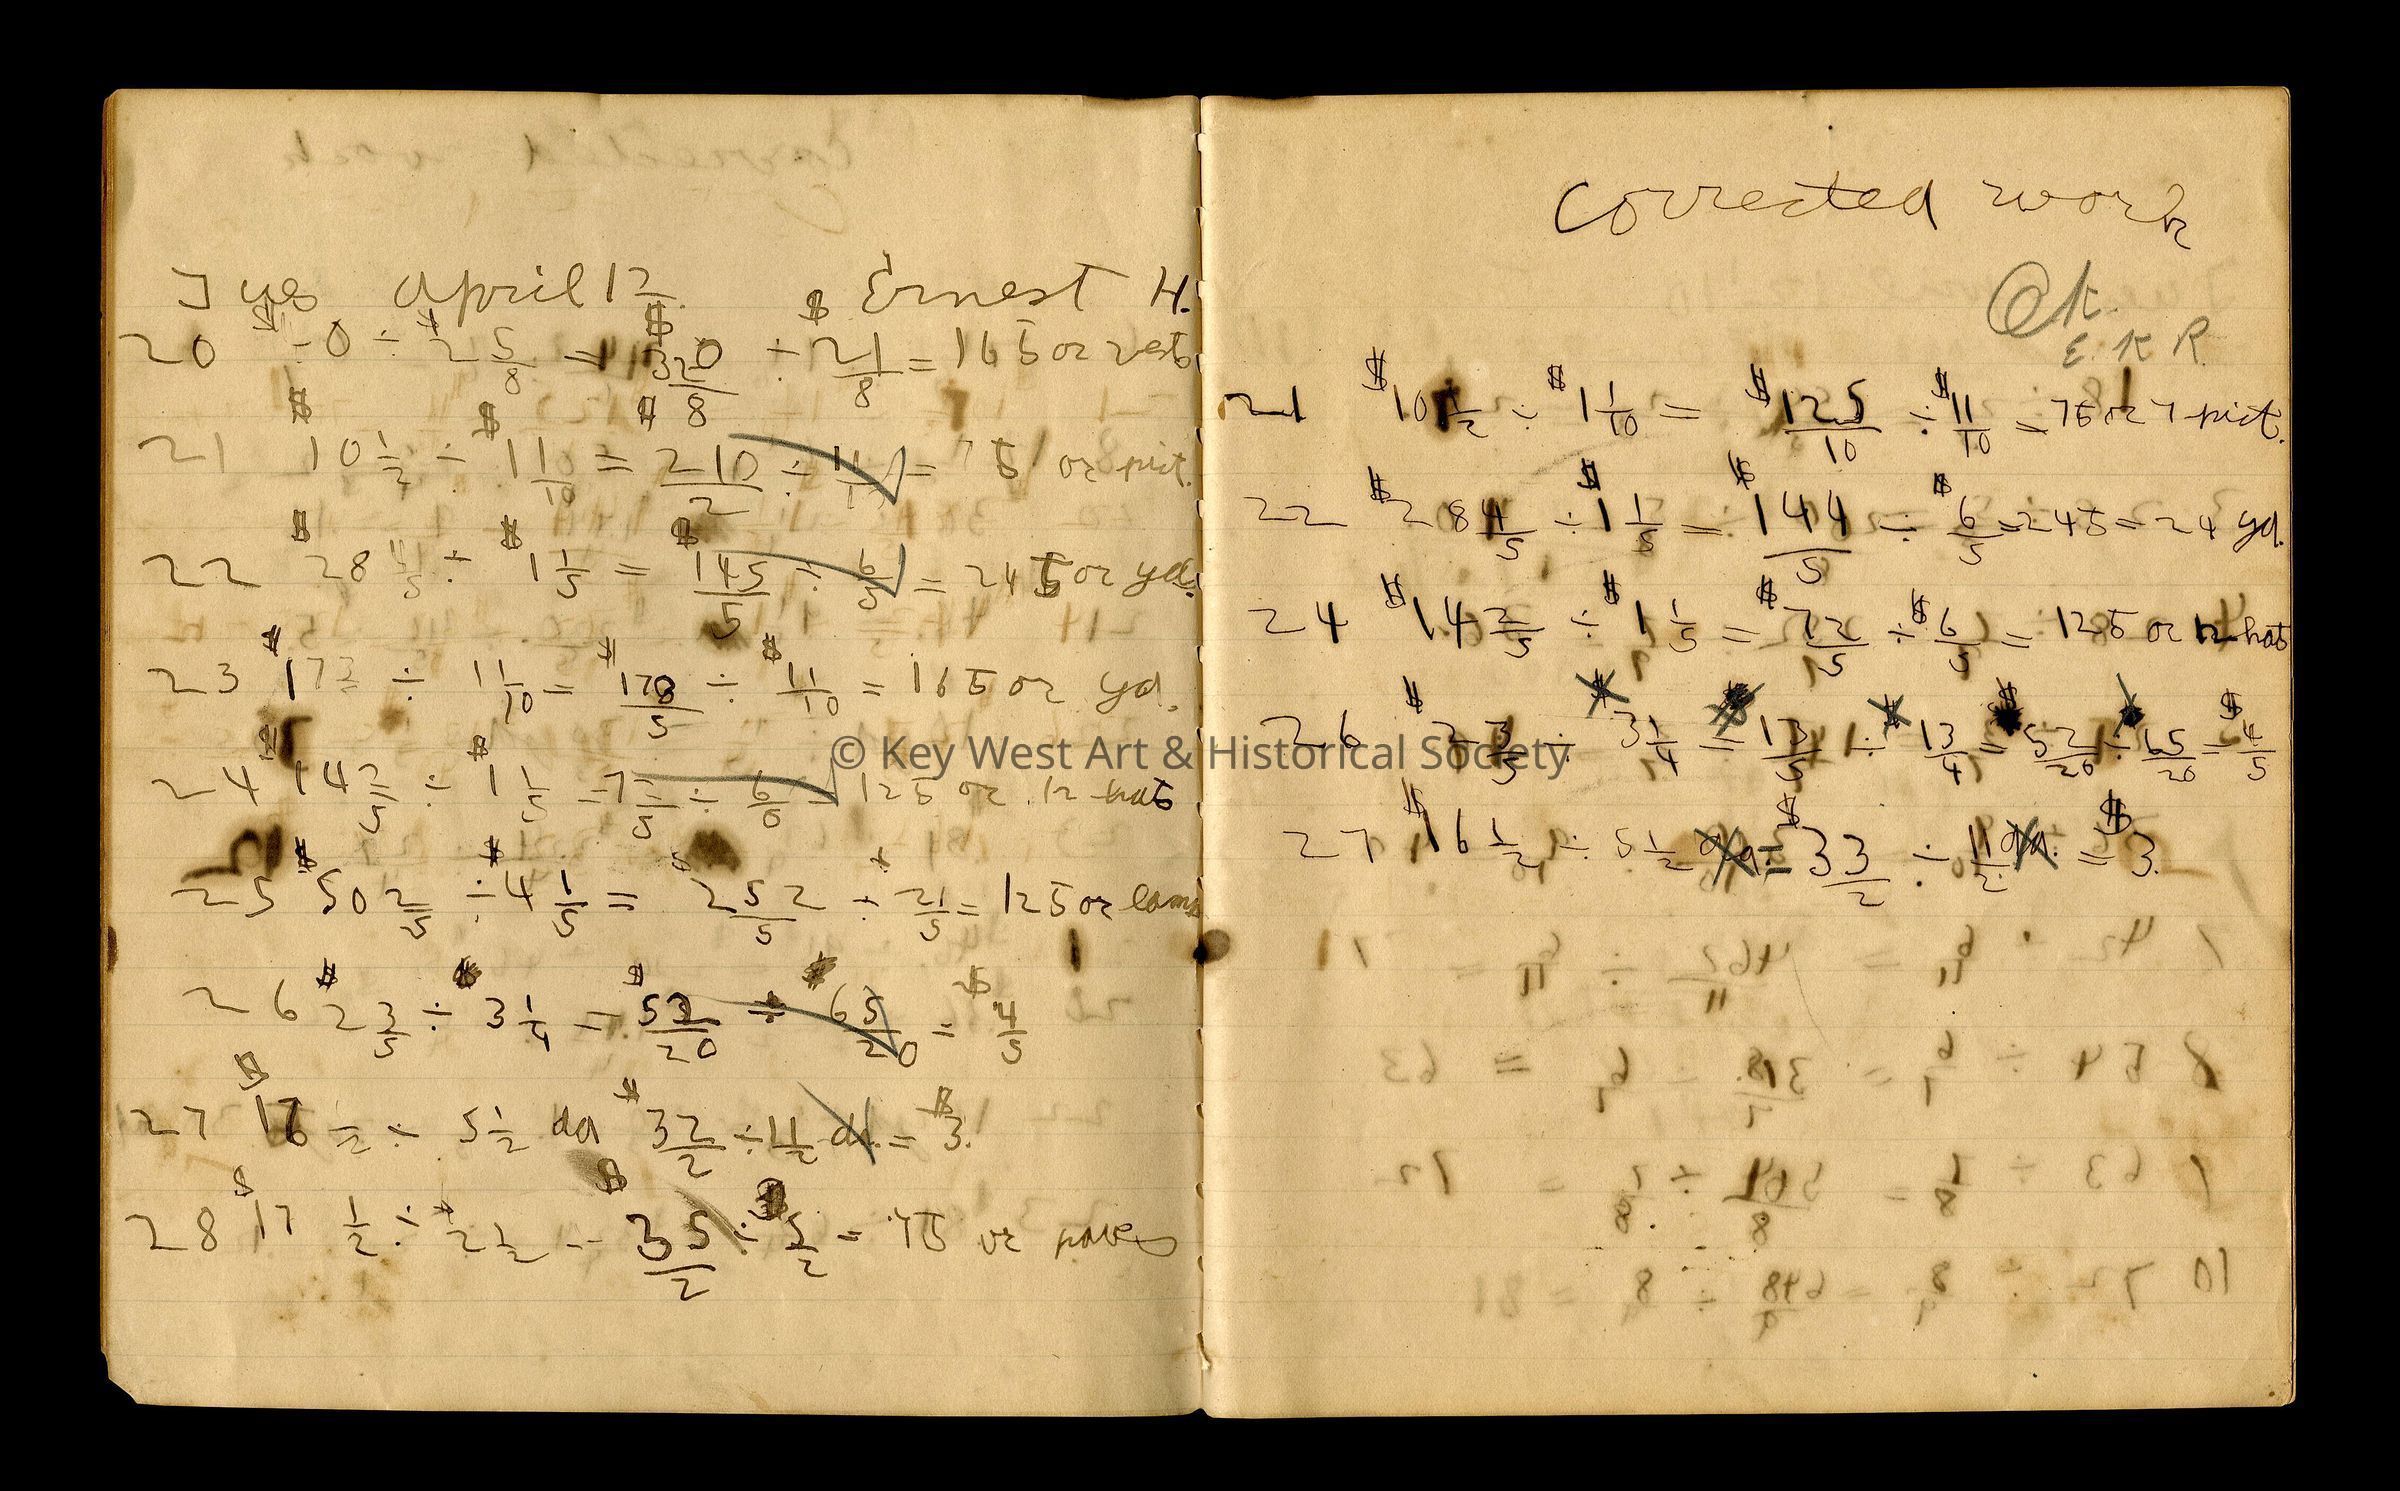 Tues April 12 Ernest H.
20 ÷ $2 5/8 = $320/8 ÷ $21/8 = 16 or vests
21 $10 1/2 ÷ $1 1/10 = $210/2 ÷ 11/1 = or pict.
22 $28 4/5 ÷ $1 1/5 = $145/5 ÷ 6/5 = 24 or yd.
23 $17 3/5 ÷ 1 1/10 = 178/5 ÷ $11/10 = 16 or yd.
24 14 2/5 ÷ $1 1/5 = 72/5 ÷ 6/5 = 12 or 12 hats
25 $50 2/5 ÷ $4 1/5 = $252/5 ÷ 21/5 = 12 or lamp
26 $2 3/5 ÷ 3 1/4 = $52/20 ÷ 65/20 = $4/5
27 $16 1/2 ÷ 5 1/2 da $32/2 ÷ 11/2 da = $3.
28 $17 1/2 ÷ 2 1/2 = $35/2 ÷ 5/2 = 7 or
corrected work
Ok.
E. K. R.
21 $10 1/2 ÷ $1 1/10 = $125/10 ÷ $11/10 = 7 or 7 pict.
22 $28 4/5 ÷ $1 1/5 = $144/5 ÷ $6/5 = 24 = 24 yd.
24 $14 2/5 ÷ $1 1/5 = $72/5 ÷ $6/5 = 12 or 12 hats
26 $2 3/5 ÷ 3 1/4 = 13/5 ÷ 13/4 = 52/20 ÷ 65/20 = $4/5
27 $16 1/2 ÷ 5 1/2 da. = $33/2 ÷ 11/2 da. = $3.
© Key West Art & Historical Society